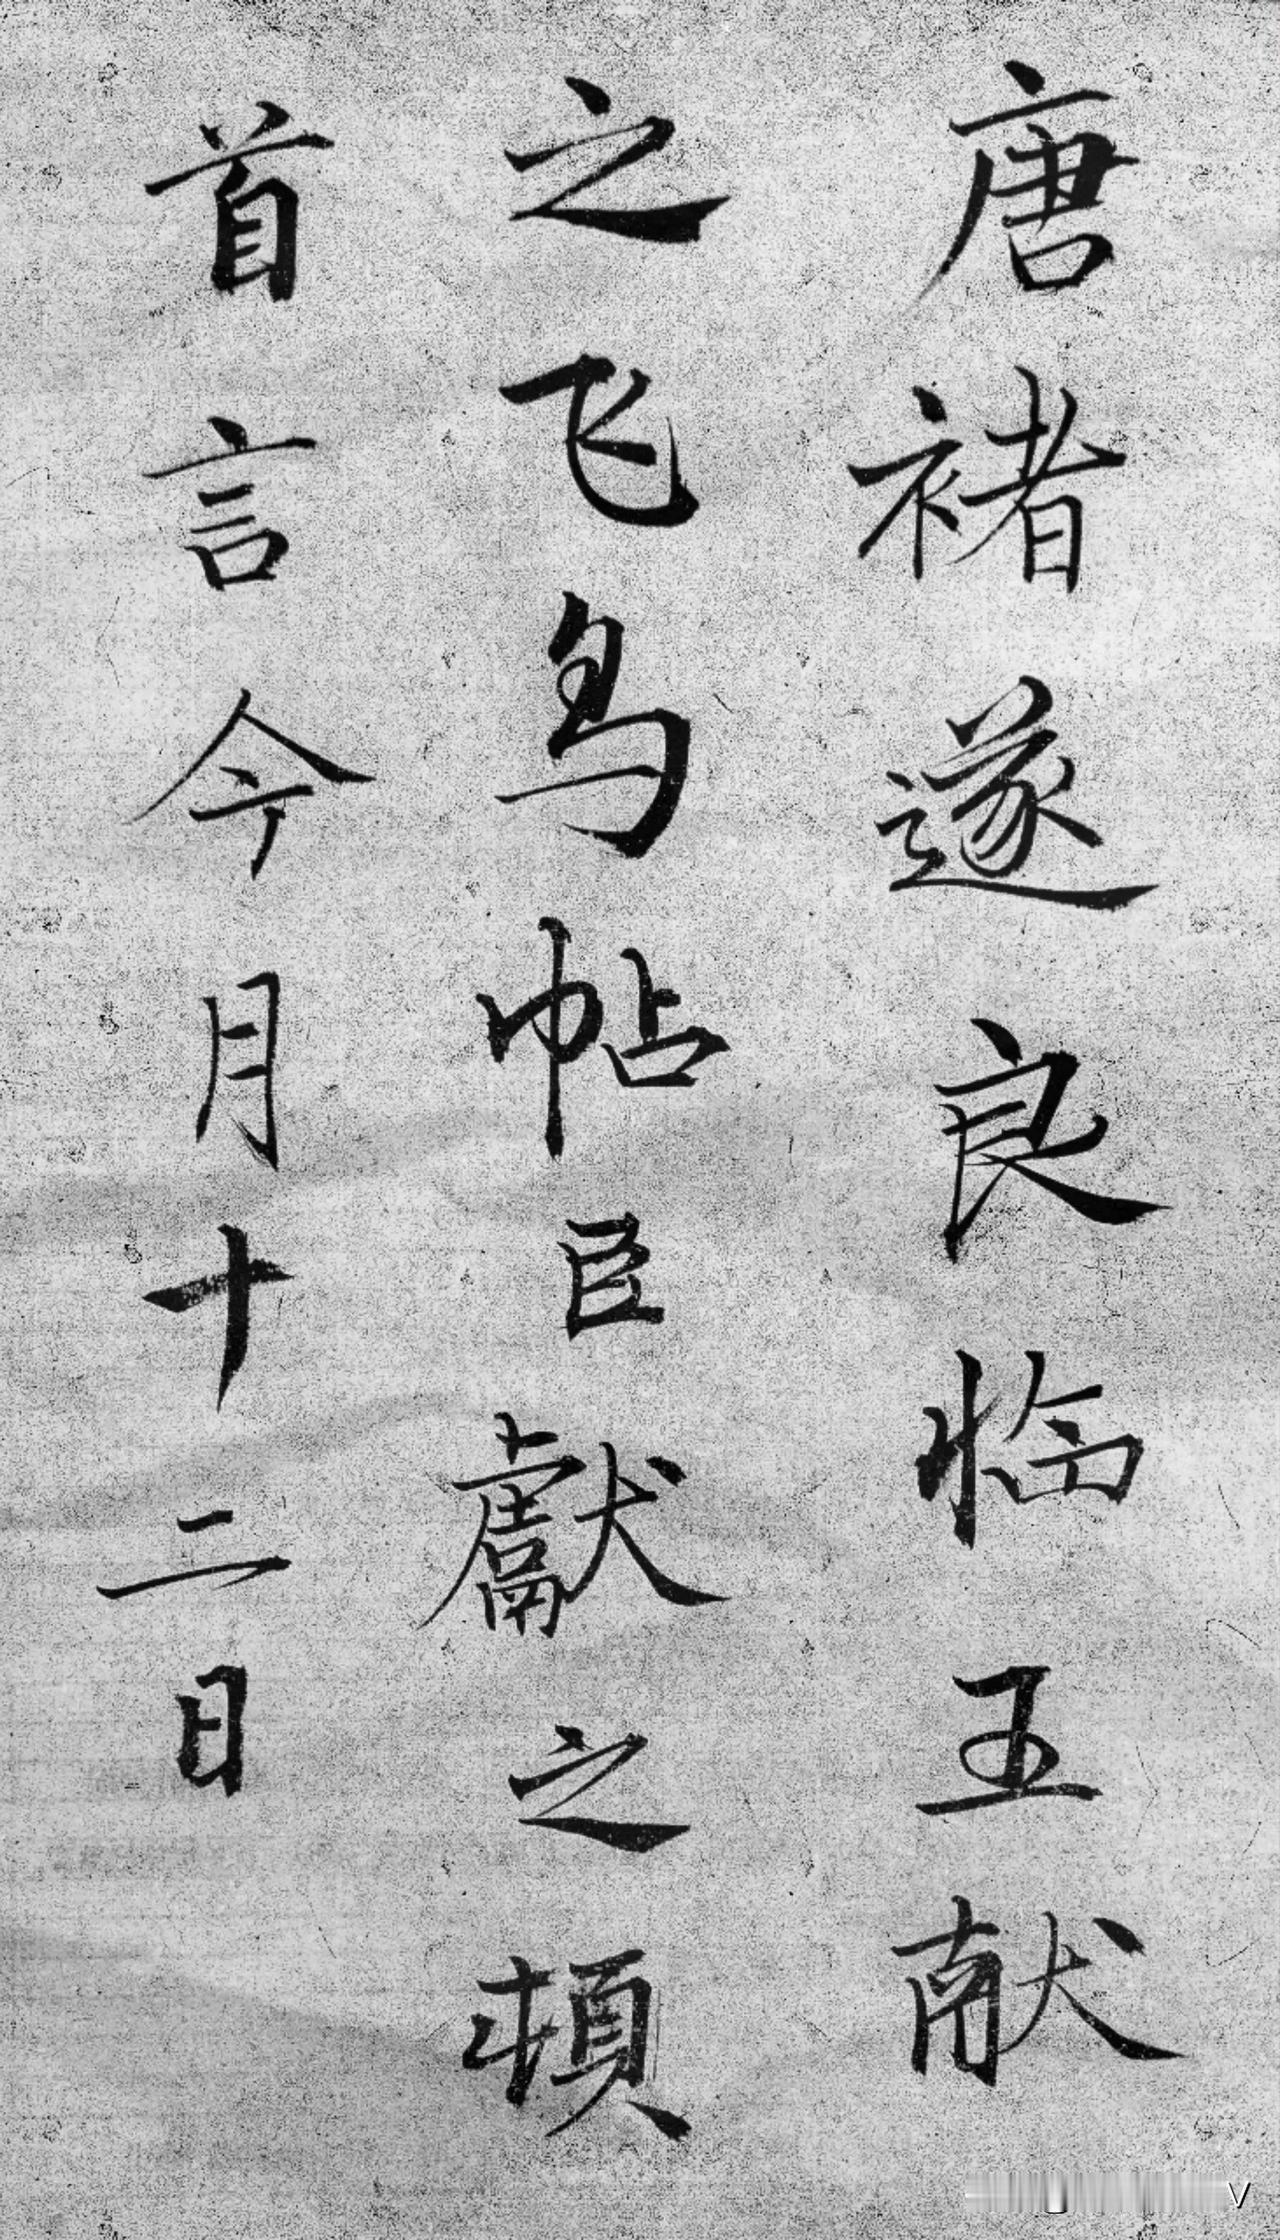 唐褚遂良临王献
之飞鸟帖臣獻之頓
首言今月十二日